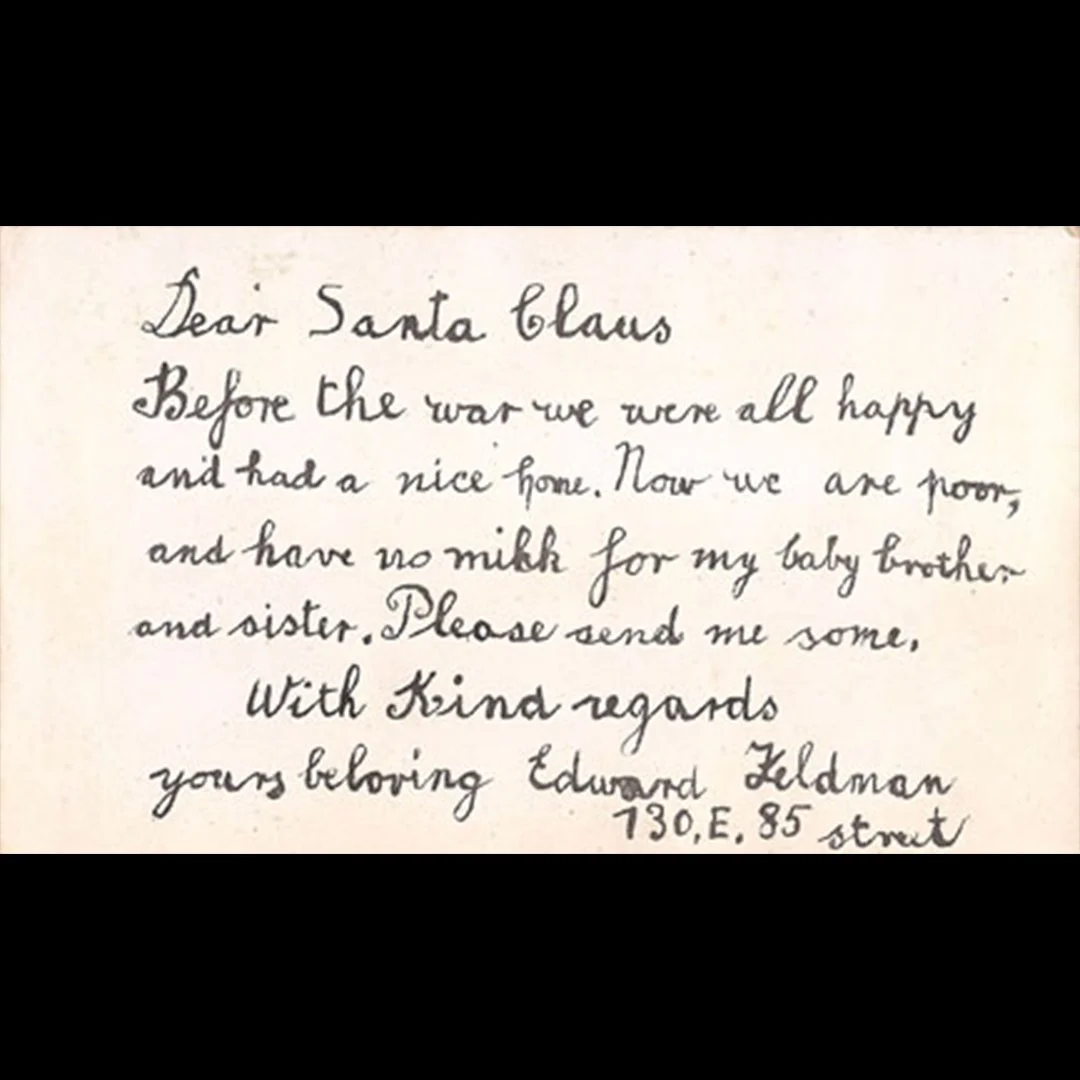 Dear Santa Claus
Before the war we were all happy
and had a nice home. Now we are poor,
and have no milk for my baby brother
and sister. Please send me some.
With Kind regards
yours beloving Edward Feldman
130, E. 85 street